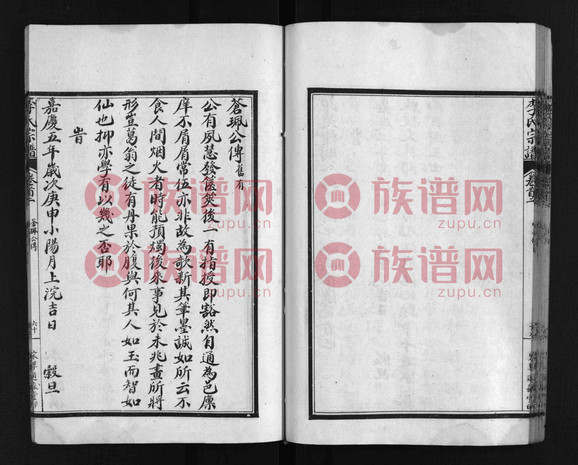 蒼珮公傳 舊有
公有夙慧發僿癸後一有指授即豁然自通為邑廩
庠不屑屑常伍亦非故為歌新其筆墨誠如所云不
食人間烟火者時能預燭後來事見於未兆晝所將
形萱葛翁之徒有丹果於腹與何其人如玉而智如
仙也抑亦學有以幾之否耶
旹
嘉慶五年歲次庚申小陽月上浣吉日 穀旦
李氏宗譜
蒼珮公傳
族谱网
zupu.cn
族谱网
zupu.cn
族谱网
zupu.cn
族谱网
zupu.cn
李氏宗譜